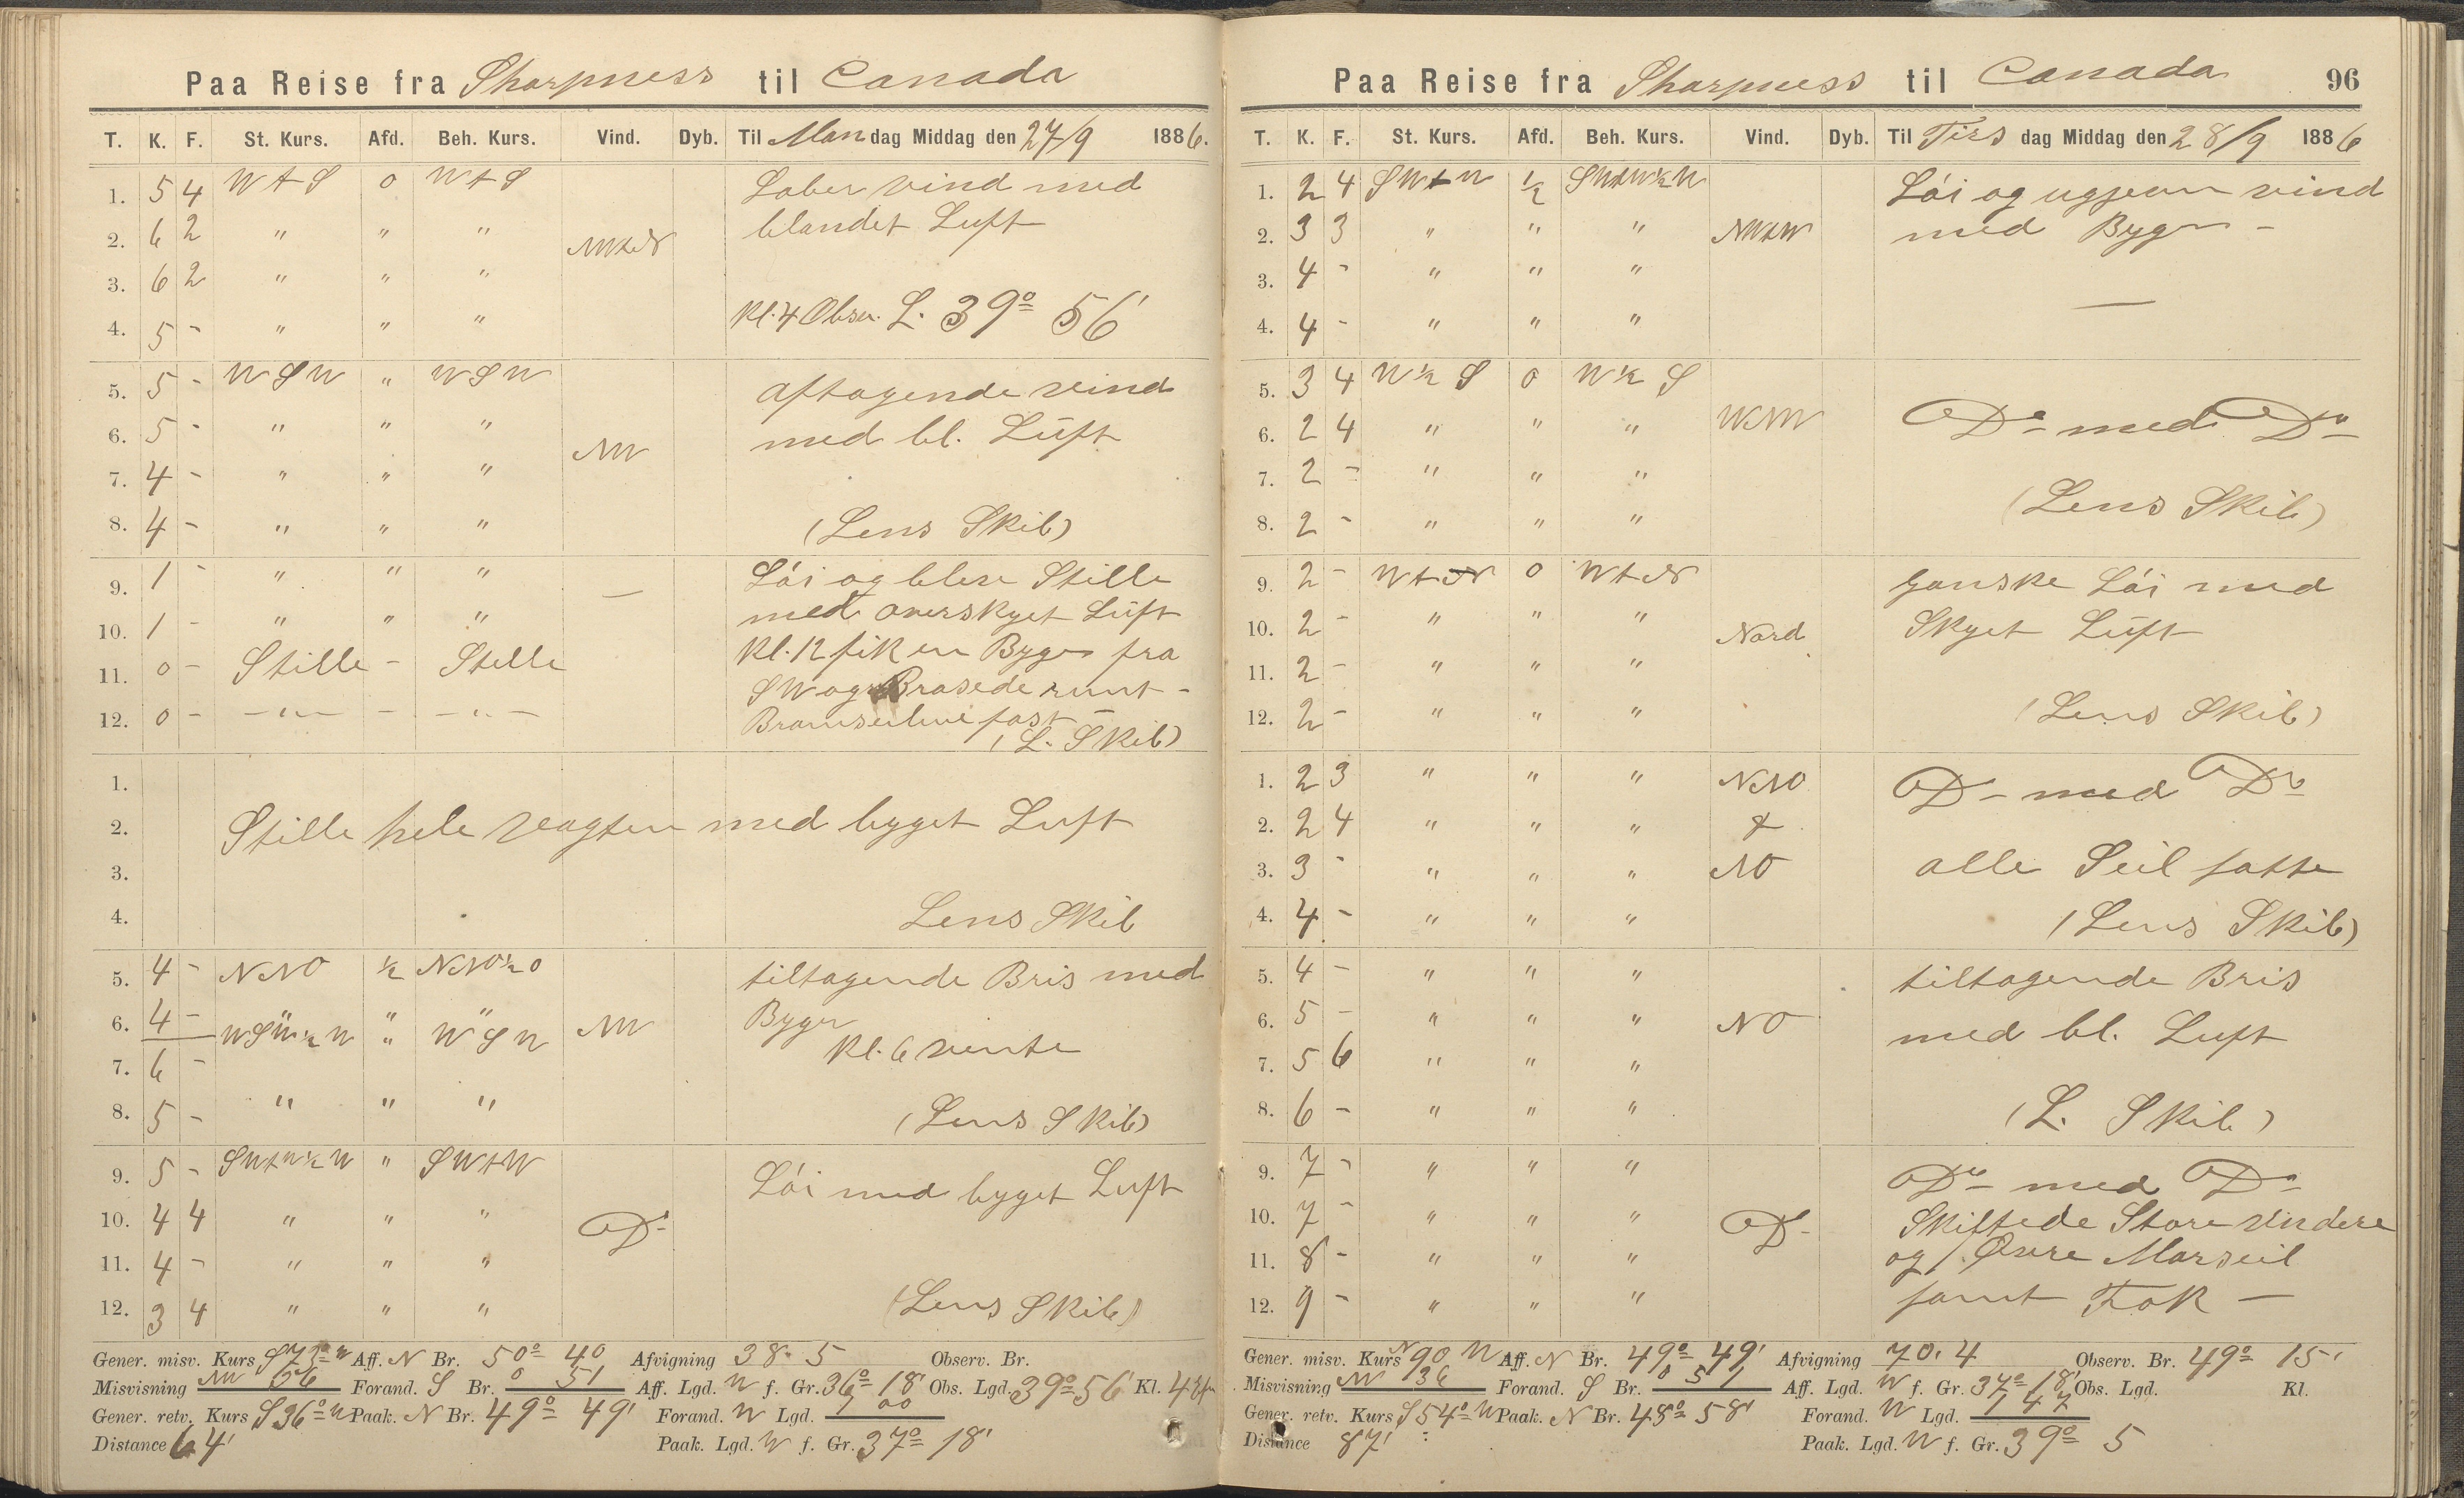 Paa Reise fra Sharpness til Canada
T. K. F. St. Kurs. Afd. Beh. Kurs. Vind. Dyb. Til Mandag Middag den 27/9 1886.
1. 5 4 W t S 0 W t S Laber vind med
2. 6 2 " " " NWtN blandet Luft
3. 6 2 " " "
4. 5 - " " " Kl. 4 Obser. L. 39° 56'
5. 5 - W S W " W S W aftagende vind
6. 5 - " " " NW med bl. Luft
7. 4 - " " "
8. 4 - " " " (Lens Skib)
9. 1 - " " " — Löi og blev Stille
10. 1 - " " " med overskyet Luft
11. 0 - Stille - Stille Kl. 12 fik en Byge fra
SW og Brasede runt -
12. 0 - - " - - - " - Bramseilene fast -
(L. Skib)
1.
2. Stille hele vagten med byget Luft
3.
4. Lens Skib
5. 4 - NNO ½ NNO½O tiltagende Bris med
6. 4 - " " " NW Byger
WSW½W " WSW Kl. 6 vente
7. 6 -
8. 5 - " " " (Lens Skib)
9. 5 - SWtW½W " SWtW Löi med byget Luft
10. 4 4 " " " D°
11. 4 - " " "
12. 3 4 " " " (Lens Skib)
Gener. misv. Kurs S 73° W Aff. N Br. 50° 40 Afvigning 38.5 Observ. Br.
Misvisning NW Forand. S Br. 0 51 Aff. Lgd. W f. Gr. 36° 18' Obs. Lgd. 39° 56' Kl. 4
Gener. retv. Kurs S 36° W Paak. N Br. 49° 49' Forand. W Lgd. 1 00
Distance 64' Paak. Lgd. W f. Gr. 37° 18'
Paa Reise fra Sharpness til Canada 96
T. K. F. St. Kurs. Afd. Beh. Kurs. Vind. Dyb. Til Tirsdag Middag den 28/9 1886
1. 2 4 SWtW ½ SWtW½W Löi og ugjevn vind
2. 3 3 " " " NWtW med Byger -
3. 4 - " " "
4. 4 - " " "
5. 3 4 W½S 0 W½S
6. 2 4 " " " WNW D° med D°
7. 2 - " " "
8. 2 - " " " (Lens Skib)
9. 2 - WtN 0 WtN ganske Löi med
10. 2 - " " " Nord Skyet Luft
11. 2 - " " "
12. 2 - " " " (Lens Skib)
1. 2 3 " " " NNO D° med D°
2. 2 4 " " " &
3. 3 - " " " NO alle Seil satte
4. 4 - " " " (Lens Skib)
5. 4 - " " " tiltagende Bris
6. 5 - " " " NO med bl. Luft
7. 5 6 " " "
8. 6 - " " " (L. Skib)
9. 7 - " " " D° med D°
10. 7 - " " " D° Skiftede Store
11. 8 - " " " og Övre Merseil
12. 9 - " " " samt Fok -
Gener. misv. Kurs N 90 W Aff. N Br. 49° 49' Afvigning 70.4 Observ. Br. 49° 15'
Misvisning NW 36 Forand. S Br. 0 51 Aff. Lgd. W f. Gr. 37° 18' Obs. Lgd. Kl.
Gener. retv. Kurs S 54° W Paak. N Br. 48° 58' Forand. W Lgd. 1 47
Distance 87' Paak. Lgd. W f. Gr. 39° 5